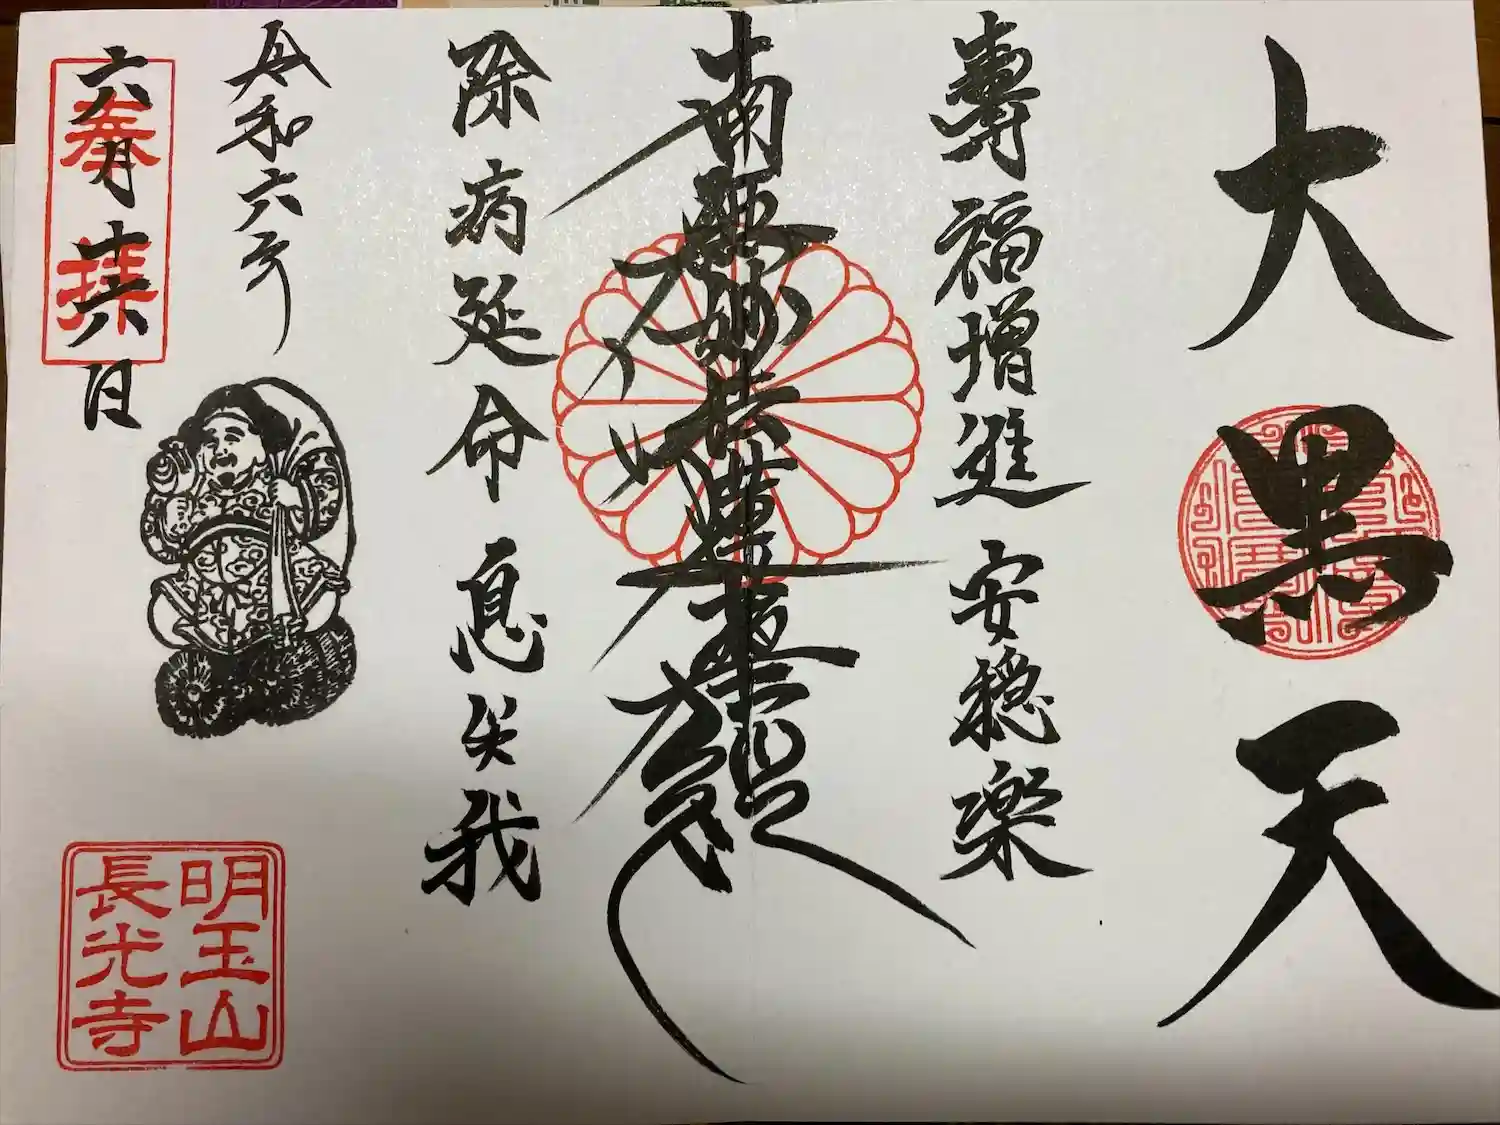 大黒天
壽福増進 安穏楽
南無妙法蓮華經
除病延命 息我
令和六年
奉拝
六月十六日
明玉山
長光寺